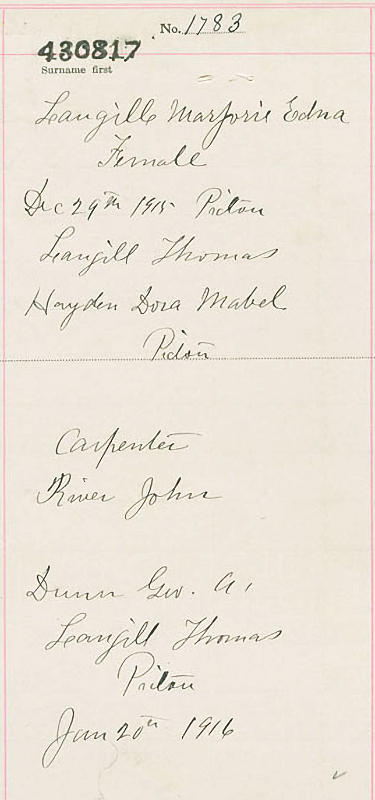 No. 1783
430817
Surname first
Langille Marjorie Edna
Female
Dec 29th 1915 Pictou
Langill Thomas
Hayden Dora Mabel
Pictou
Carpenter
River John
Dunn Geo. A.
Langill Thomas
Pictou
Jan 20th 1916